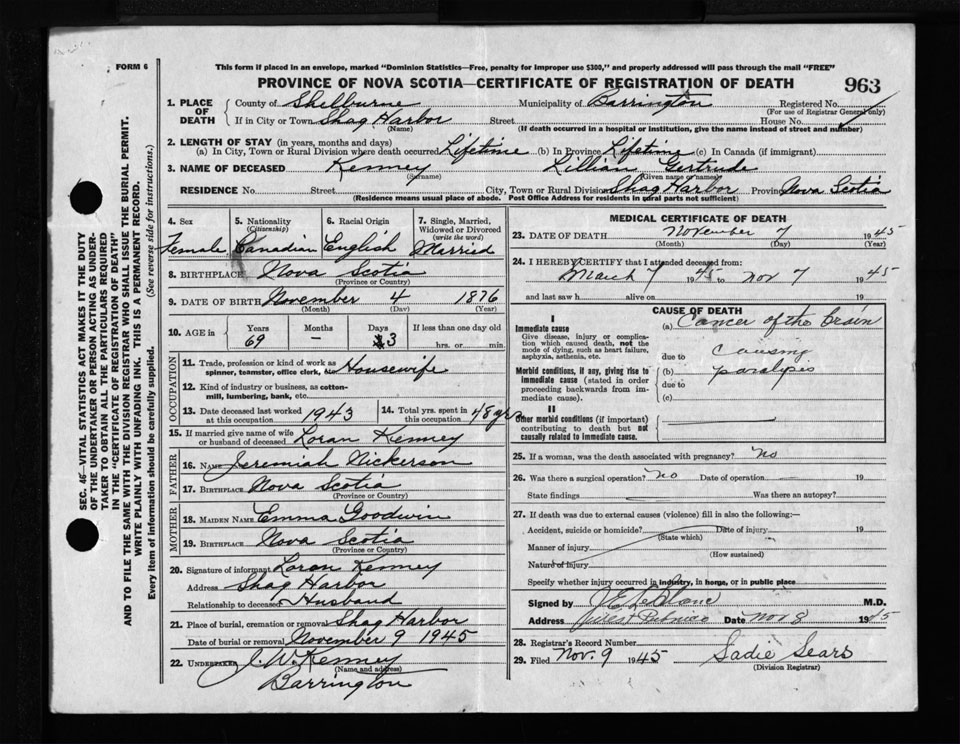 FORM 6
This form if placed in an envelope, marked "Dominion Statistics—Free, penalty for improper use $300," and properly addressed will pass through the mail "FREE"
PROVINCE OF NOVA SCOTIA—CERTIFICATE OF REGISTRATION OF DEATH 963
SEC. 46—VITAL STATISTICS ACT MAKES IT THE DUTY
OF THE UNDERTAKER OR PERSON ACTING AS UNDER-
TAKER TO OBTAIN ALL THE PARTICULARS REQUIRED
IN THE "CERTIFICATE OF REGISTRATION OF DEATH"
AND TO FILE THE SAME WITH THE DIVISION REGISTRAR WHO SHALL ISSUE THE BURIAL PERMIT.
WRITE PLAINLY WITH UNFADING INK. THIS IS A PERMANENT RECORD.
Every item of information should be carefully supplied. (See reverse side for instructions.)
1. PLACE OF DEATH County of Shelburne Municipality of Barrington Registered No.
(For use of Registrar General only)
If in City or Town Shag Harbor Street House No.
(Name) (If death occurred in a hospital or institution, give the name instead of street and number)
2. LENGTH OF STAY (in years, months and days)
(a) In City, Town or Rural Division where death occurred Lifetime (b) In Province Lifetime (c) In Canada (if immigrant)
3. NAME OF DECEASED Kenney Lillian Gertrude
(Surname) (Given name or names)
RESIDENCE No. Street City, Town or Rural Division Shag Harbor Province Nova Scotia
(Residence means usual place of abode. Post Office Address for residents in rural parts not sufficient)
4. Sex Female
5. Nationality (Citizenship) Canadian
6. Racial Origin English
7. Single, Married, Widowed or Divorced (write the word) Married
8. BIRTHPLACE Nova Scotia
(Province or Country)
9. DATE OF BIRTH November 4 1876
(Month) (Day) (Year)
10. AGE in Years 69 Months — Days 3 If less than one day old hrs. or min.
OCCUPATION
11. Trade, profession or kind of work as spinner, teamster, office clerk, etc. Housewife
12. Kind of industry or business, as cotton-mill, lumbering, bank, etc.
13. Date deceased last worked at this occupation 1943
14. Total yrs. spent in this occupation 48 yrs
15. If married give name of wife or husband of deceased Loran Kenney
FATHER
16. NAME Jeremiah Nickerson
17. BIRTHPLACE Nova Scotia
(Province or Country)
MOTHER
18. MAIDEN NAME Emma Goodwin
19. BIRTHPLACE Nova Scotia
(Province or Country)
20. Signature of informant Loran Kenney
Address Shag Harbor
Relationship to deceased Husband
21. Place of burial, cremation or removal Shag Harbor
Date of burial or removal November 9 1945
22. UNDERTAKER J. W. Kenney
(Name and address)
Barrington
MEDICAL CERTIFICATE OF DEATH
23. DATE OF DEATH November 7 1945
(Month) (Day) (Year)
24. I HEREBY CERTIFY that I attended deceased from:
March 7 1945 to Nov 7 1945
and last saw h alive on 19
CAUSE OF DEATH
I
Immediate cause
Give disease, injury or complication which caused death, not the mode of dying, such as heart failure, asphyxia, asthenia, etc.
(a) Cancer of the brain
due to causing
Morbid conditions, if any, giving rise to immediate cause (stated in order proceeding backwards from immediate cause).
(b) paralysis
due to
(c)
II
Other morbid conditions (if important) contributing to death but not causally related to immediate cause.
25. If a woman, was the death associated with pregnancy? No
26. Was there a surgical operation? No Date of operation — 19
State findings Was there an autopsy?
27. If death was due to external causes (violence) fill in also the following:—
Accident, suicide or homicide? Date of injury 19
(State which)
Manner of injury
(How sustained)
Nature of injury
Specify whether injury occurred in industry, in home, or in public place
Signed by J E LeBlanc M.D.
Address West Pubnico Date Nov 8 1945
28. Registrar's Record Number
29. Filed Nov. 9 1945 Sadie Sears
(Division Registrar)